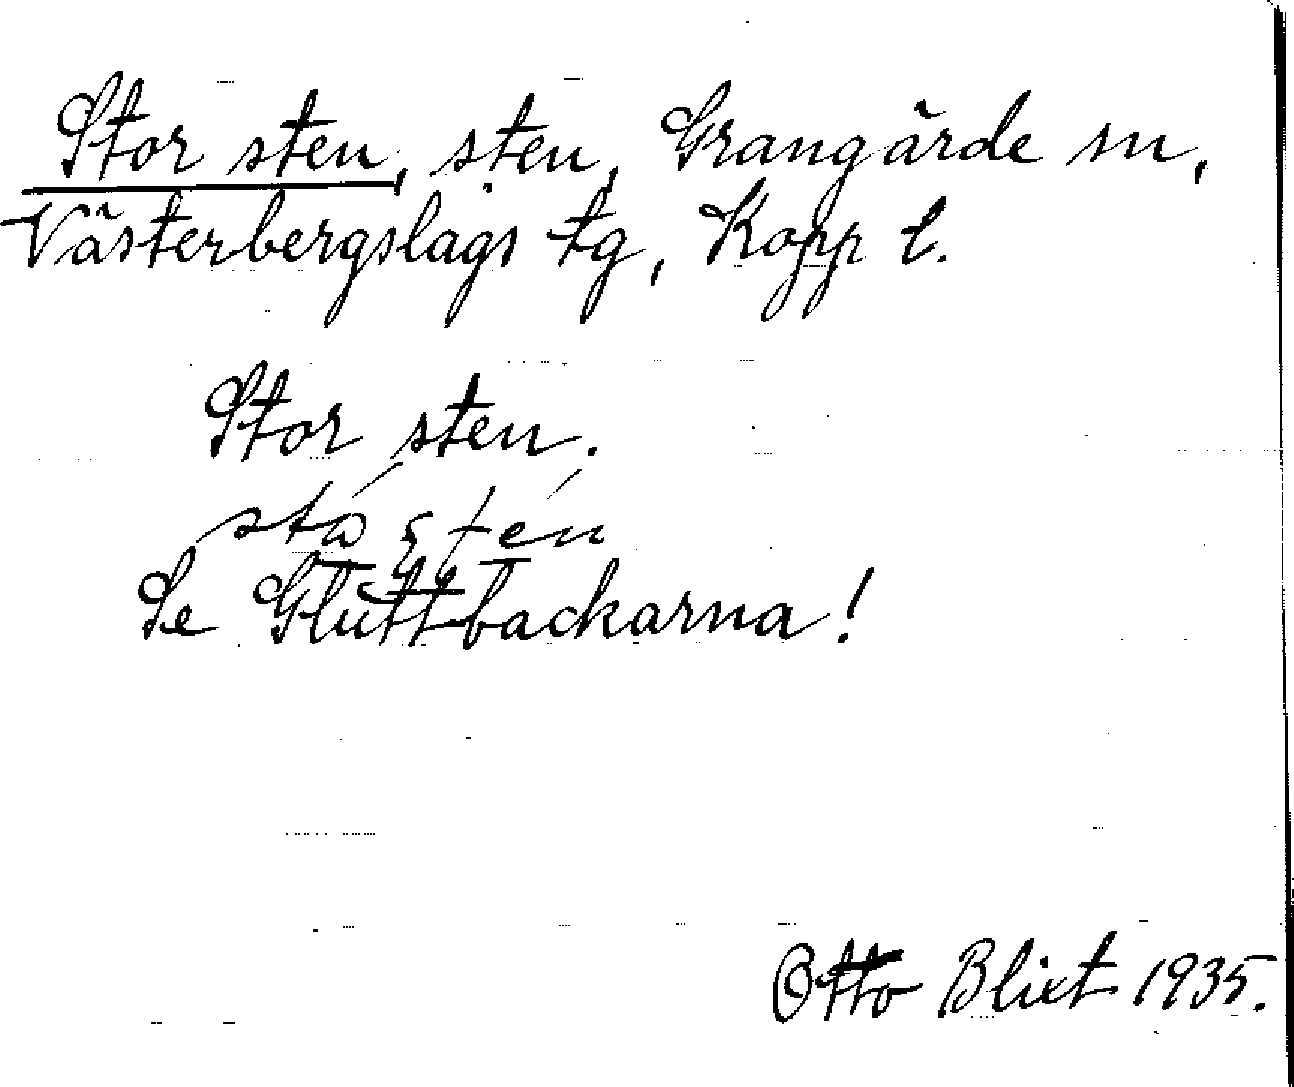 Stor sten, sten, Grangärde sn,
Västerbergslags tg, Kopp l.
Stor sten.
Se Gluttbackarna!
Otto Blixt 1935.